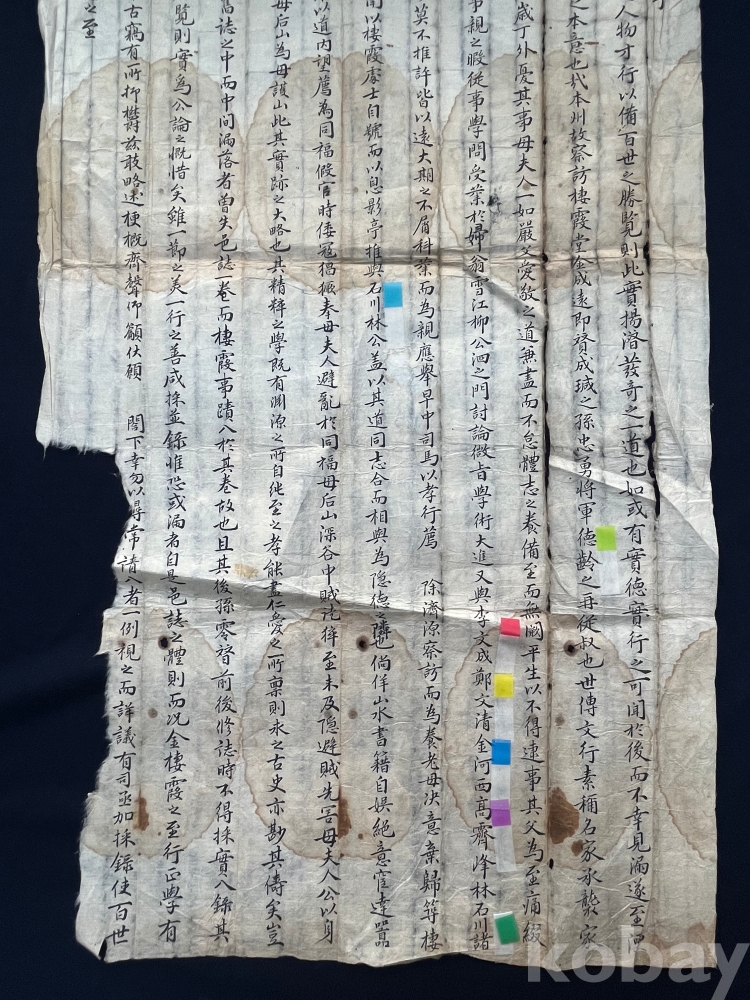 人物才行以備百世之勝覧則此實揚潛發奇之一道也如或有實德實行之可聞於後而不幸見漏遂至
之本意也哉本州故察訪棲霞堂金成遠即贇成瑊之孫忠勇將軍德齡之再從叔也世傳文行素稱名家承襲家
歲丁外憂其事母夫人一如嚴父愛敬之道兼盡而不怠軆志之養備至而無闕平生以不得逮事其父為至痛綴
事親之暇從事學問受業於婦翁雪江柳公泗之門討論微旨學術大進又與李文成鄭文清金河西高霽峰林石川諸
莫不推許皆以遠大期之不屑科業而為親應舉早中司馬以孝行薦 除濟源察訪而為養老母决意棄歸築棲
間以棲霞處士自號而以息影亭推與石川林公盖以其道同志合而相與為隐德之隣也倘佯山水書籍自娱絕意宦達嚣
以道内望薦為同福假官時倭冦猖獗奉母夫人避亂於同福母后山深谷中賊㐌猝至未及隐避賊先害母夫人公以身
母后山為母護山此其實跡之大略也其精粹之學既有淵源之所自純至之孝能盡仁愛之所禀則求之古史亦尠其儔矣豈
邑誌之中而中間漏落者曽失邑誌卷而棲霞事蹟入於其卷故也且其後孫零替前後修誌時不得採實入錄其
覧則實為公論之慨惜矣雖一節之美一行之善咸採並錄惟恐或漏者自是邑誌之軆則而况金棲霞之至行正學有
古窩有所抑欝玆敢略述梗概齊聲仰籲伏願 閤下幸勿以尋常請入者一例視之而詳議有司亟加採錄使百世
之至
kobay